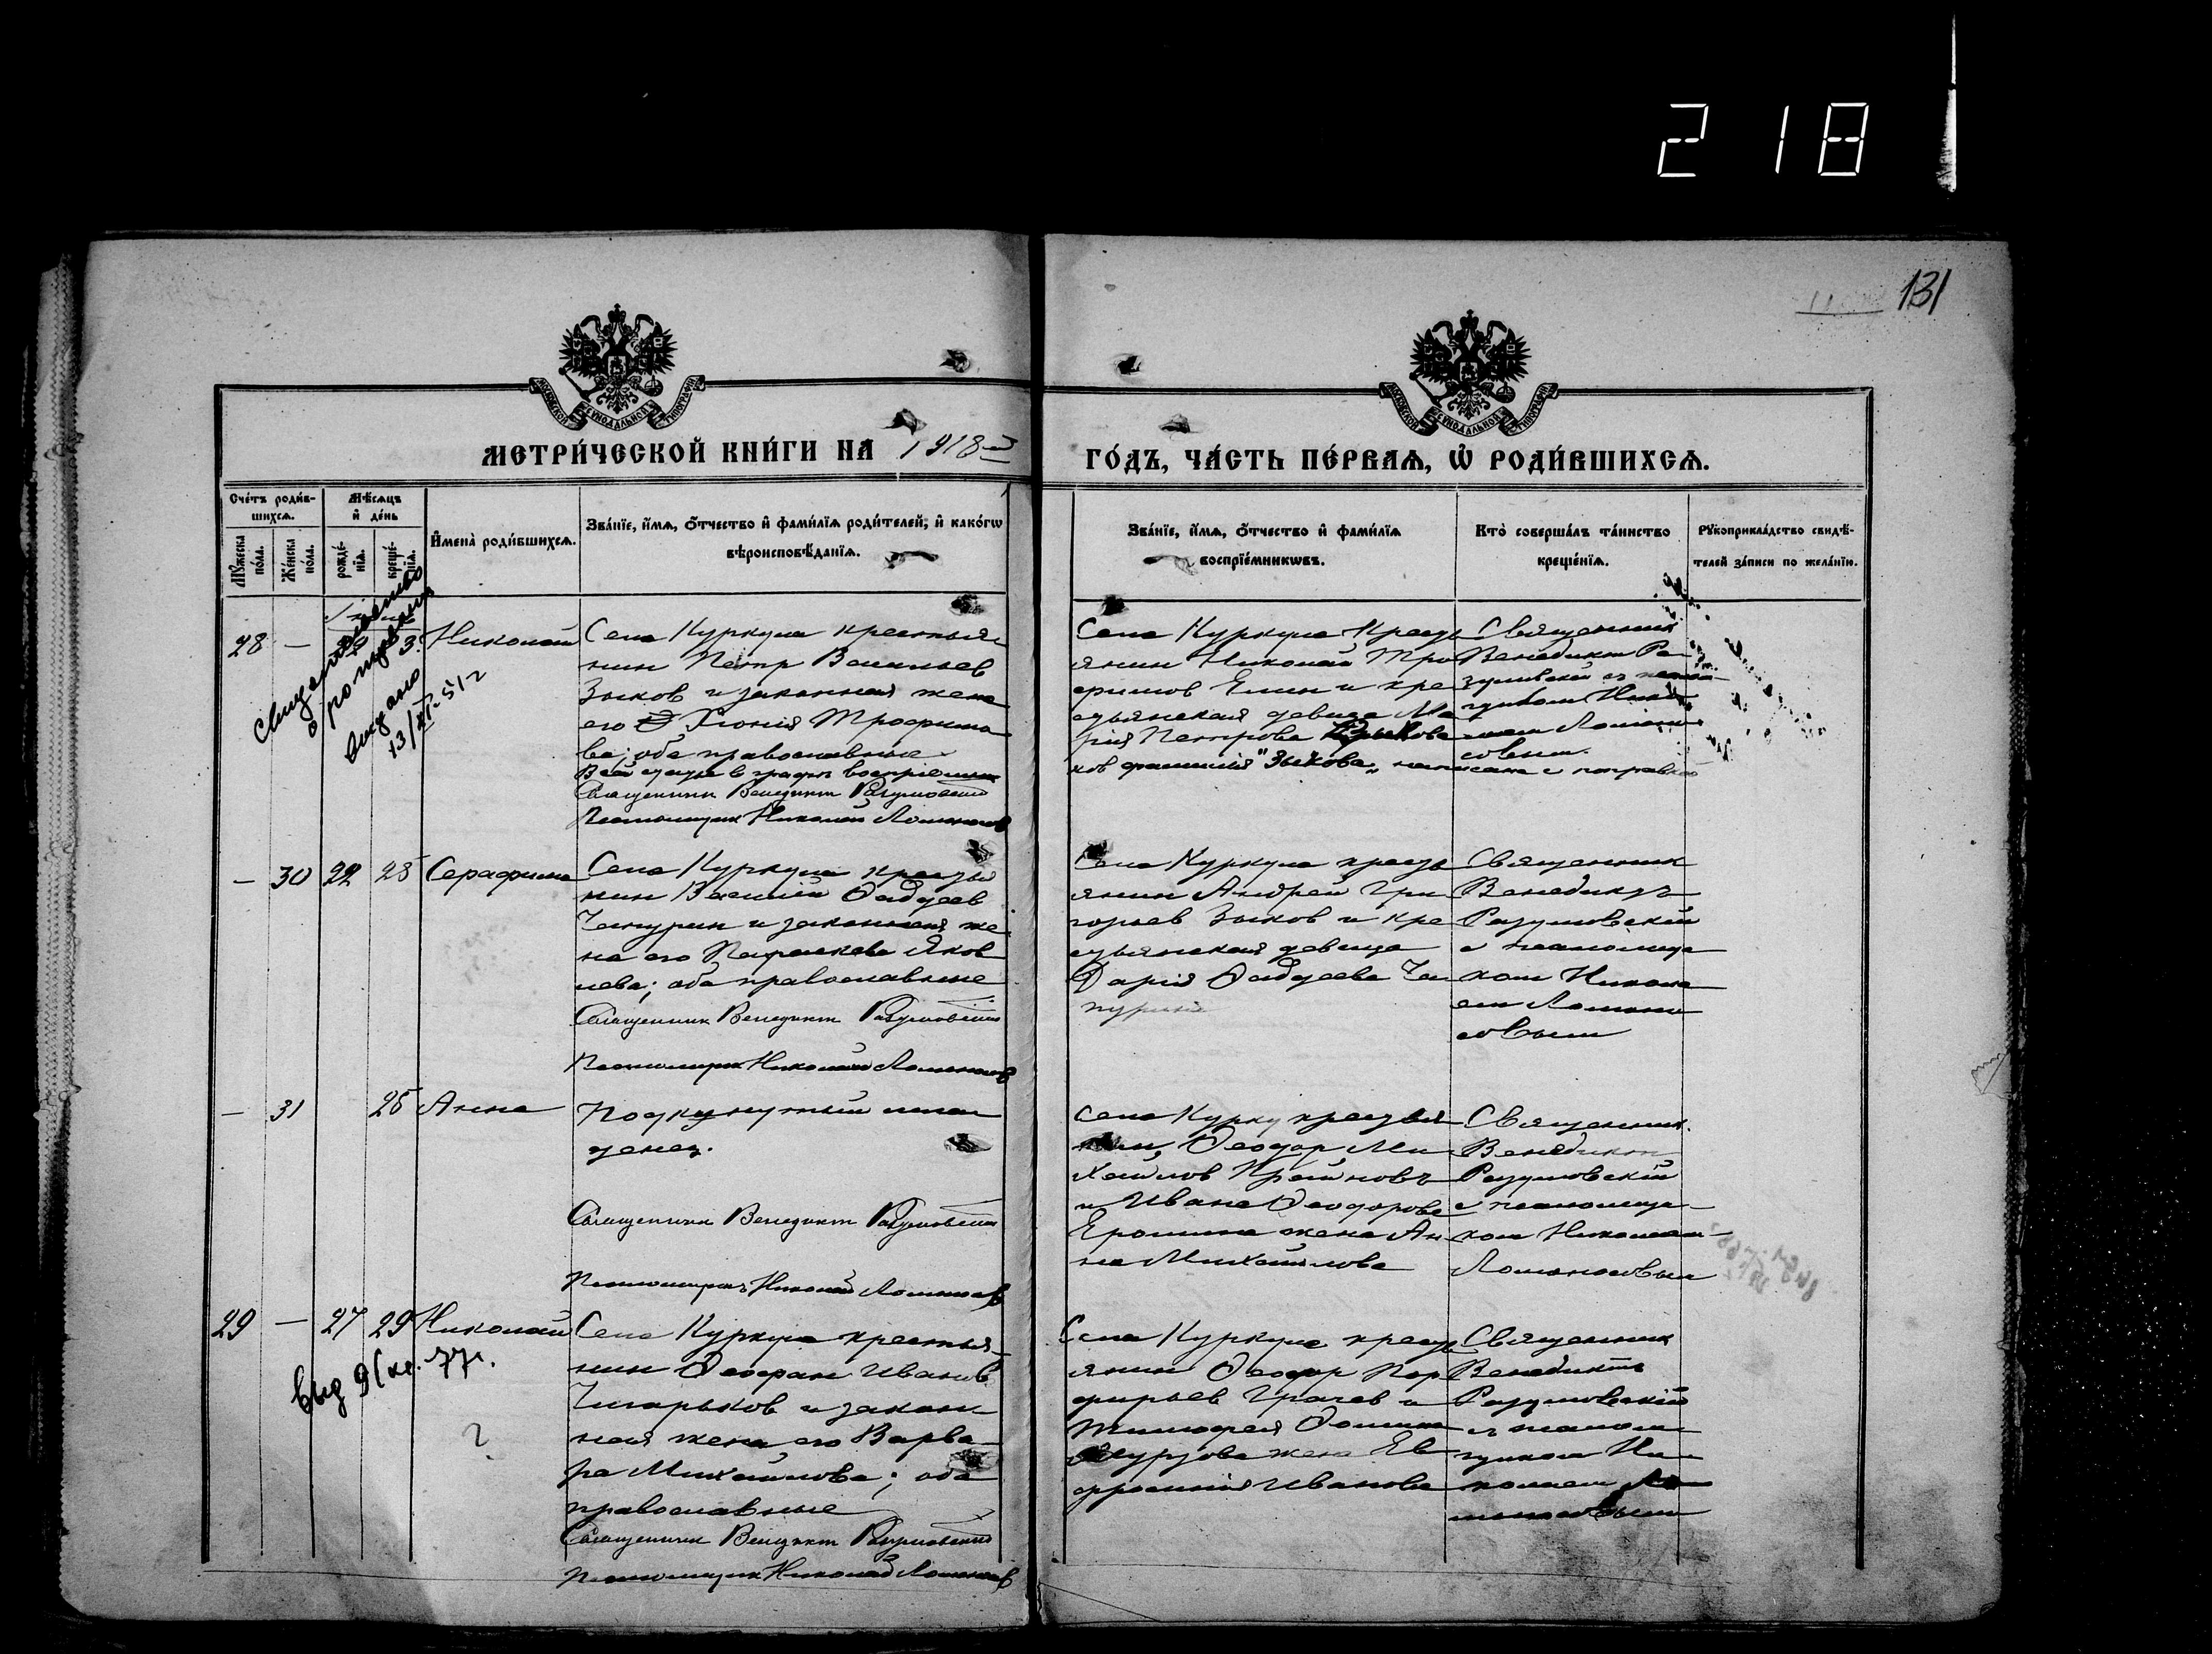 218
131
МЕТРИ́ЧЕСКОЙ КНИ́ГИ НА 1918й
ГО́ДЪ, ЧА́СТЬ ПЕ́РВАѦ, Ѽ РОДИ́ВШИХСѦ.
Сче́тъ роди́в-
шихсѧ.
Мꙋ́жеска по́ла.
Же́нска по́ла.
Мѣ́сѧцъ
и҆ де́нь
рожде́-
нїѧ.
креще́-
нїѧ.
И҆мена̀ роди́вшихсѧ.
Зва́нїе, и҆́мѧ, ѻ҆́тчество и҆ фами́лїѧ роди́телей, и҆ како́гѡ
вѣроисповѣ́данїѧ.
Зва́нїе, и҆́мѧ, ѻ҆́тчество и҆ фами́лїѧ
воспрїе́мникѡвъ.
Кто̀ соверша́лъ та́инство
креще́нїѧ.
Рꙋкоприкла́дство свидѣ́-
телей за́писи по жела́нїю.
28 — Николай
Села Куркула крестья-
нин Петр Васильев
Зыков и законная жена
его Хіонія Трофимо
ва; оба православные
Священник Венедикт Разумовский
Псаломщик Николай Ломоносов
Села Куркула крест
янин Николай Тро
фимов Елин и кре
стьянская девица Ма
рия Петрова
фамилия "Зыкова" написана с поправкой
Священник
Венедикт Ра
зумовский с псалом
щиком Нико
лаем Ломоно
совым.
выдано
— 30 22 25 Серафима
Села Куркула кресть
нин Василий Фаддеев
Чапурин и законная же
на его Параскева Яков
лева; оба православные
Священник Венедикт Разумовский
Псаломщик Николай Ломоносов
Села Куркула кресть
янин Андрей Гри
горьев Зыков и кре
стьянская девица
Дария Фаддеева Ча
пурина
Священник
Венедиктъ
Разумовский
с псаломщи
ком Никола
ем Ломоно
совым
— 31 25 Анна
Подкинутый мла
денец.
Священник Венедикт Разумовский
Псаломщик Николай Ломоносов
Села Курку крестья
нин Феодор Ми
хайлов
и Ивана Феодорова
Еромина жена Ан
на Михайлова
Священник
Венедикт
Разумовскій
с псаломщи
ком Николаем
Ломоносовым
29 — 27 29 Николай
Села Куркула крестья
нин Феофан Иванов
Чигарьков и закон
ная жена его Варва
ра Михайлова; оба
православные
Священник Венедикт Разумовский
Псаломщик Николай Ломоносов
Села Куркула крест
янин Феодор Пор
фирьев Грачев и
Тимофея Фомина
жена Ев
фросиния Иванова
Священник
Венедиктъ
Разумовскій
с псалом
щиком Ни
колаем Ло
моносовым
?